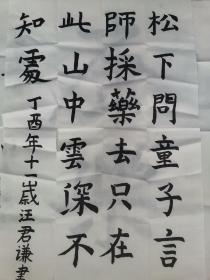 松下問童子言
師採藥去只在
此山中雲深不
知處 丁酉年十一歲汪君謙書